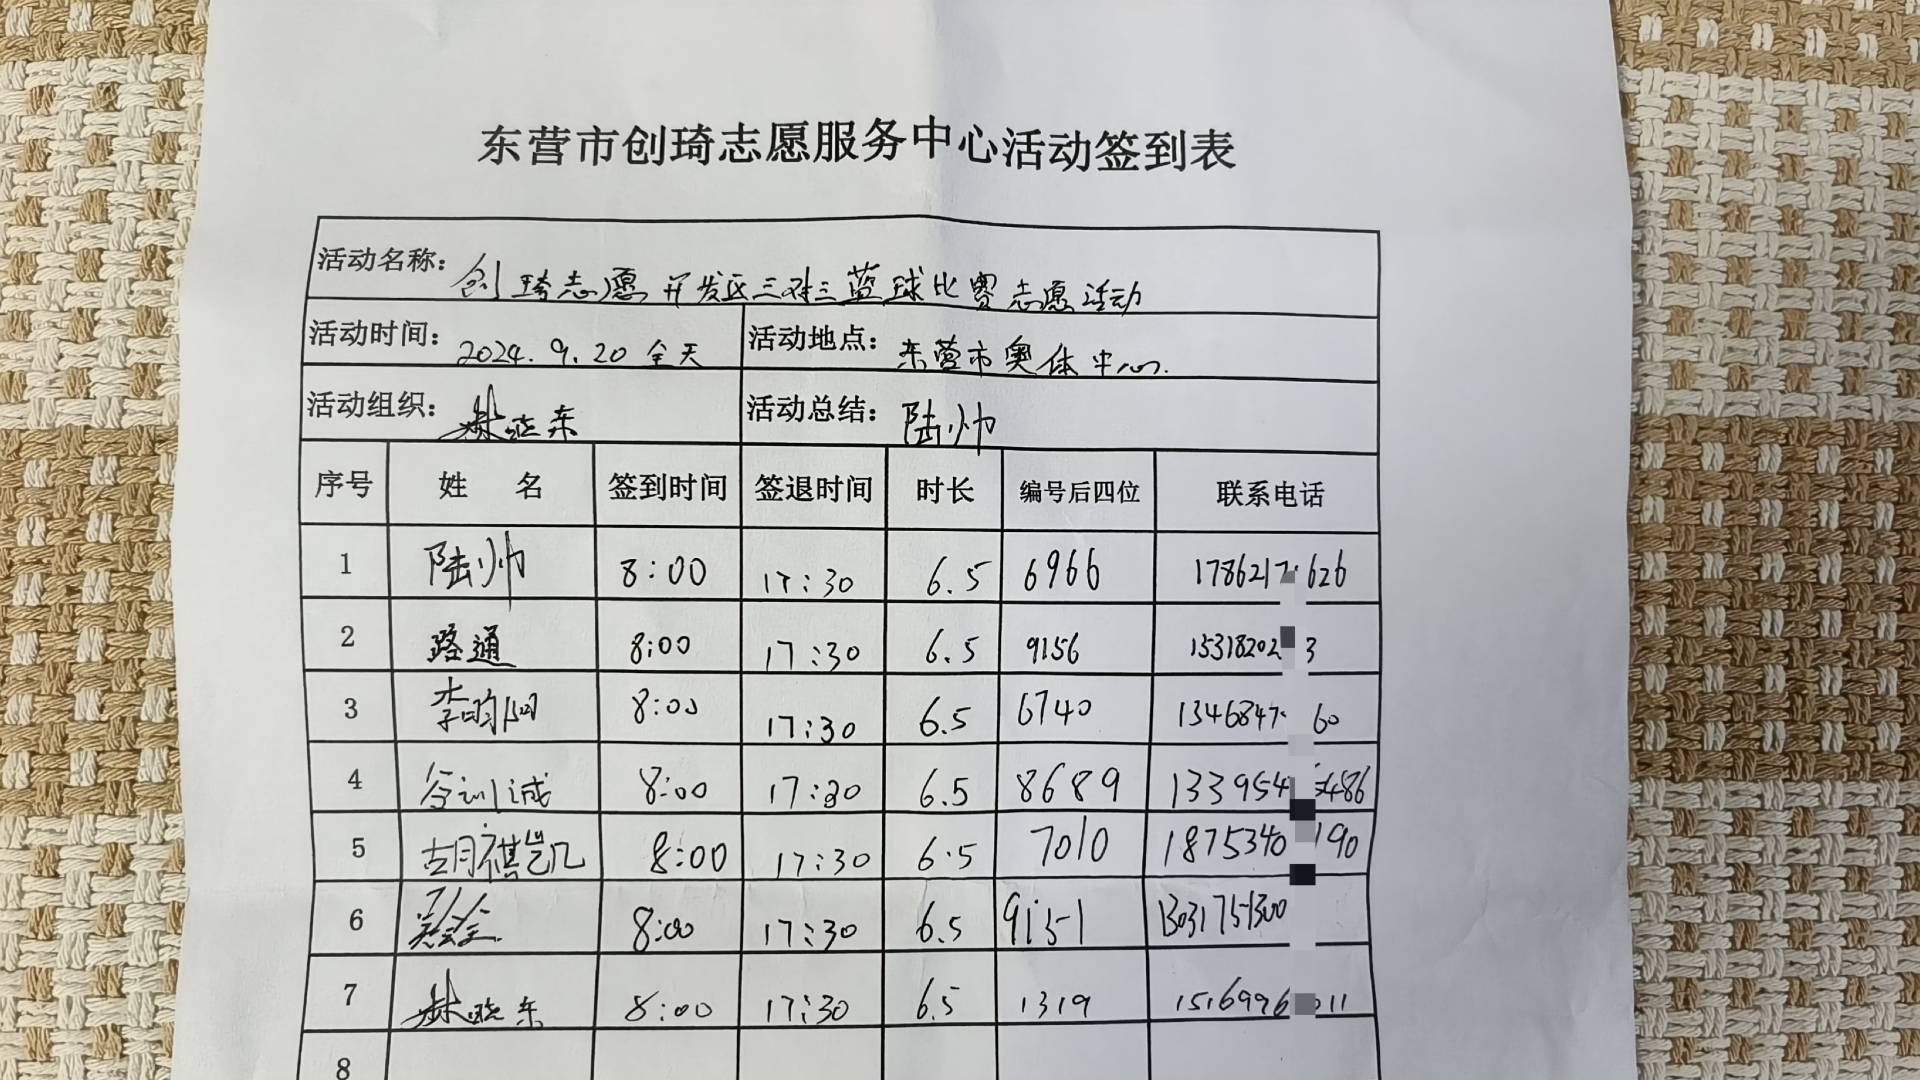 东营市创琦志愿服务中心活动签到表
活动名称：创琦志愿开发区三对三篮球比赛志愿活动
活动时间：2024.9.20 全天 活动地点：东营市奥体中心.
活动组织：林晓东 活动总结：陆帅
序号 姓 名 签到时间 签退时间 时长 编号后四位 联系电话
1 陆帅 8:00 17:30 6.5 6966 1786217 626
2 路通 8:00 17:30 6.5 9156 15318202 3
3 李昀 8:00 17:30 6.5 6740 1346847 60
4 训诚 8:00 17:30 6.5 8689 133954 486
5 胡祺凯 8:00 17:30 6.5 7010 1875340 190
6 8:00 17:30 6.5 9151 13031751300
7 林晓东 8:00 17:30 6.5 1319 1516996 11
8